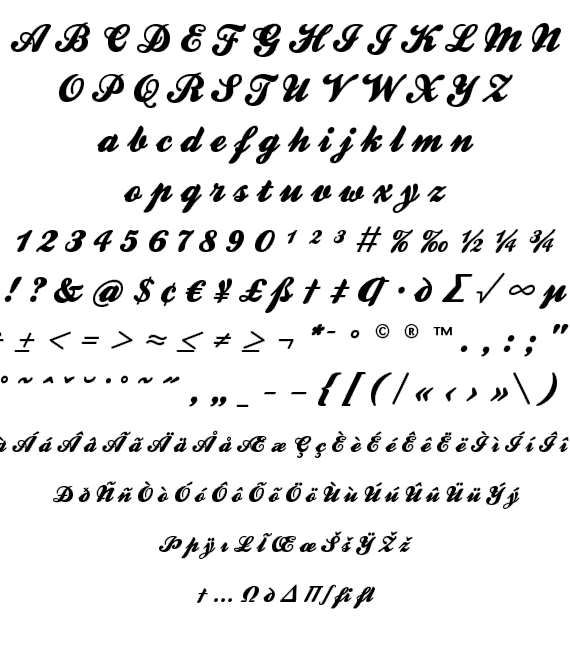 A B C D E F G H I J K L M N
O P Q R S T U V W X Y Z
a b c d e f g h i j k l m n
o p q r s t u v w x y z
1 2 3 4 5 6 7 8 9 0 ¹ ² ³ # % ‰ ½ ¼ ¾
! ? & @ $ ¢ € ¥ £ ß † ‡ ¶ · ∂ Σ √ ∞ µ
± < = > ≈ ≤ ≠ ≥ ¬ * - ° © ® ™ . , : ; "
° ~ ^ ˇ ˘ · ° ~ ˝ ‚ „ _ - – { [ ( / « ‹ › » \ )
à Á á Â â Ã ã Ä ä Å å Æ æ Ç ç È è É é Ê ê Ë ë Ì ì Í í Î î
Ð ð Ñ ñ Ò ò Ó ó Ô ô Õ õ Ö ö Ù ù Ú ú Û û Ü ü Ý ý
Þ þ ÿ ı Ł Ĩ Œ œ Š š Ÿ Ž ž
† ... Ω ∂ Δ Π ∫ fi fl